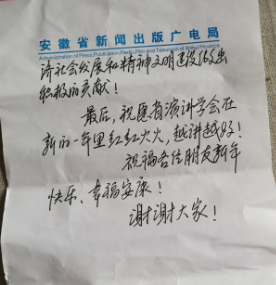 安徽省新闻出版广电局
Administration of Press,Publication,Radio,Film and Television of Anhui Province
济社会发展和精神文明建设做出
积极的贡献！
最后，祝愿省演讲学会在
新的一年里红红火火，越讲越好！
祝福各位朋友新年
快乐、幸福安康！
谢谢大家！